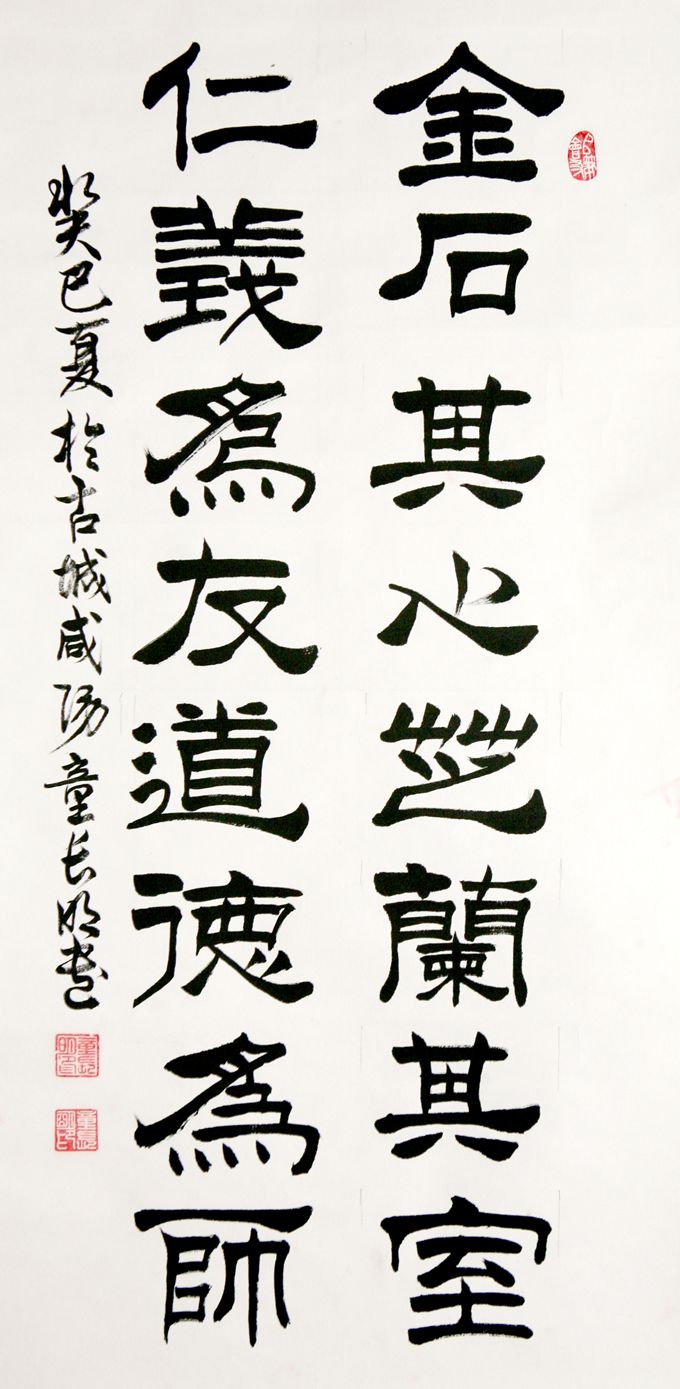 金石其心芝蘭其室
仁義為友道德為師
癸巳夏於古城咸陽童長明書